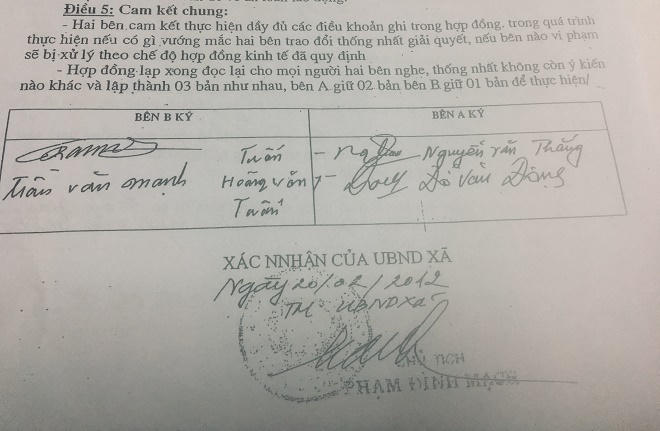 Điều 5: Cam kết chung:
- Hai bên cam kết thực hiện dầy đủ các điều khoản ghi trong hợp đồng. trong quá trình
thực hiện nếu có gì vướng mắc hai bên trao đổi thống nhất giải quyết, nếu bên nào vi phạm
sẽ bị xử lý theo chế độ hợp đồng kinh tế đã quy định
- Hợp đồng lạp xong đọc lại cho mọi người hai bên nghe, thống nhất không còn ý kiến
nào khác và lập thành 03 bản như nhau, bên A giữ 02 bản bên B giữ 01 bản để thực hiện/
BÊN B KÝ BÊN A KÝ
Tuấn - Nguyễn Văn Thắng
Trần văn mạnh Hoàng văn - Đỗ Văn Động
Tuân
XÁC NNHẬN CỦA UBND XÃ
Ngày 20/02/2012
TM UBND Xã
CHỦ TỊCH
PHẠM ĐÌNH MẠNH